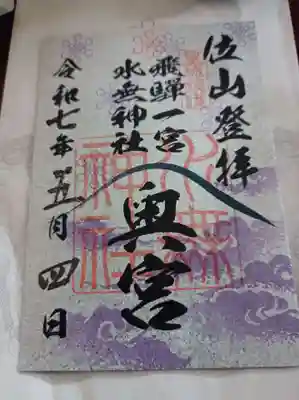 位山登拝
飛騨一宮
水無神社
奥宮
令和七年五月四日
水無
神社